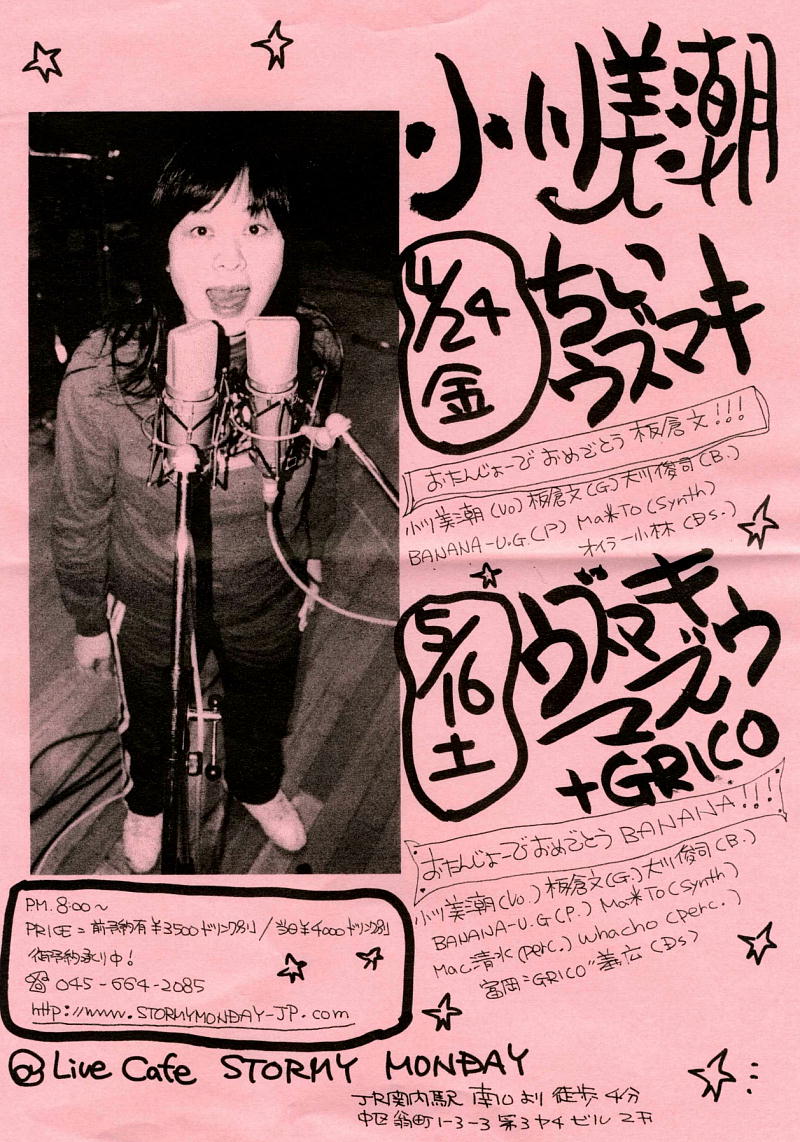 小川美潮
4/24
金
ちい
ウズマキ
おたんじょーび おめでとう 板倉文!!!
小川美潮(Vo) 板倉文(G) 大川俊司(B.)
BANANA-U.G.(P) Ma*To(Synth)
オイラー小林(Ds.)
5/16
土
ウズマキ
マズウ
+GRICO
おたんじょーびおめでとう BANANA!!!
小川美潮(Vo.) 板倉文(G.) 大川俊司(B.)
BANANA-U.G(P.) Ma*To(Synth)
Mac.清水(perc.) Whacho(perc.)
富岡"GRICO"義広(Ds)
PM. 8:00~
PRICE = 前予約有¥3500ドリンク別/当日¥4000ドリンク別
御予約承り中!
☎ 045-664-2085
http://www.STORMYMONDAY-JP.com
@Live Cafe STORMY MONDAY
JR関内駅 南口より 徒歩4分
中区翁町1-3-3 第3ヤチビル 2F